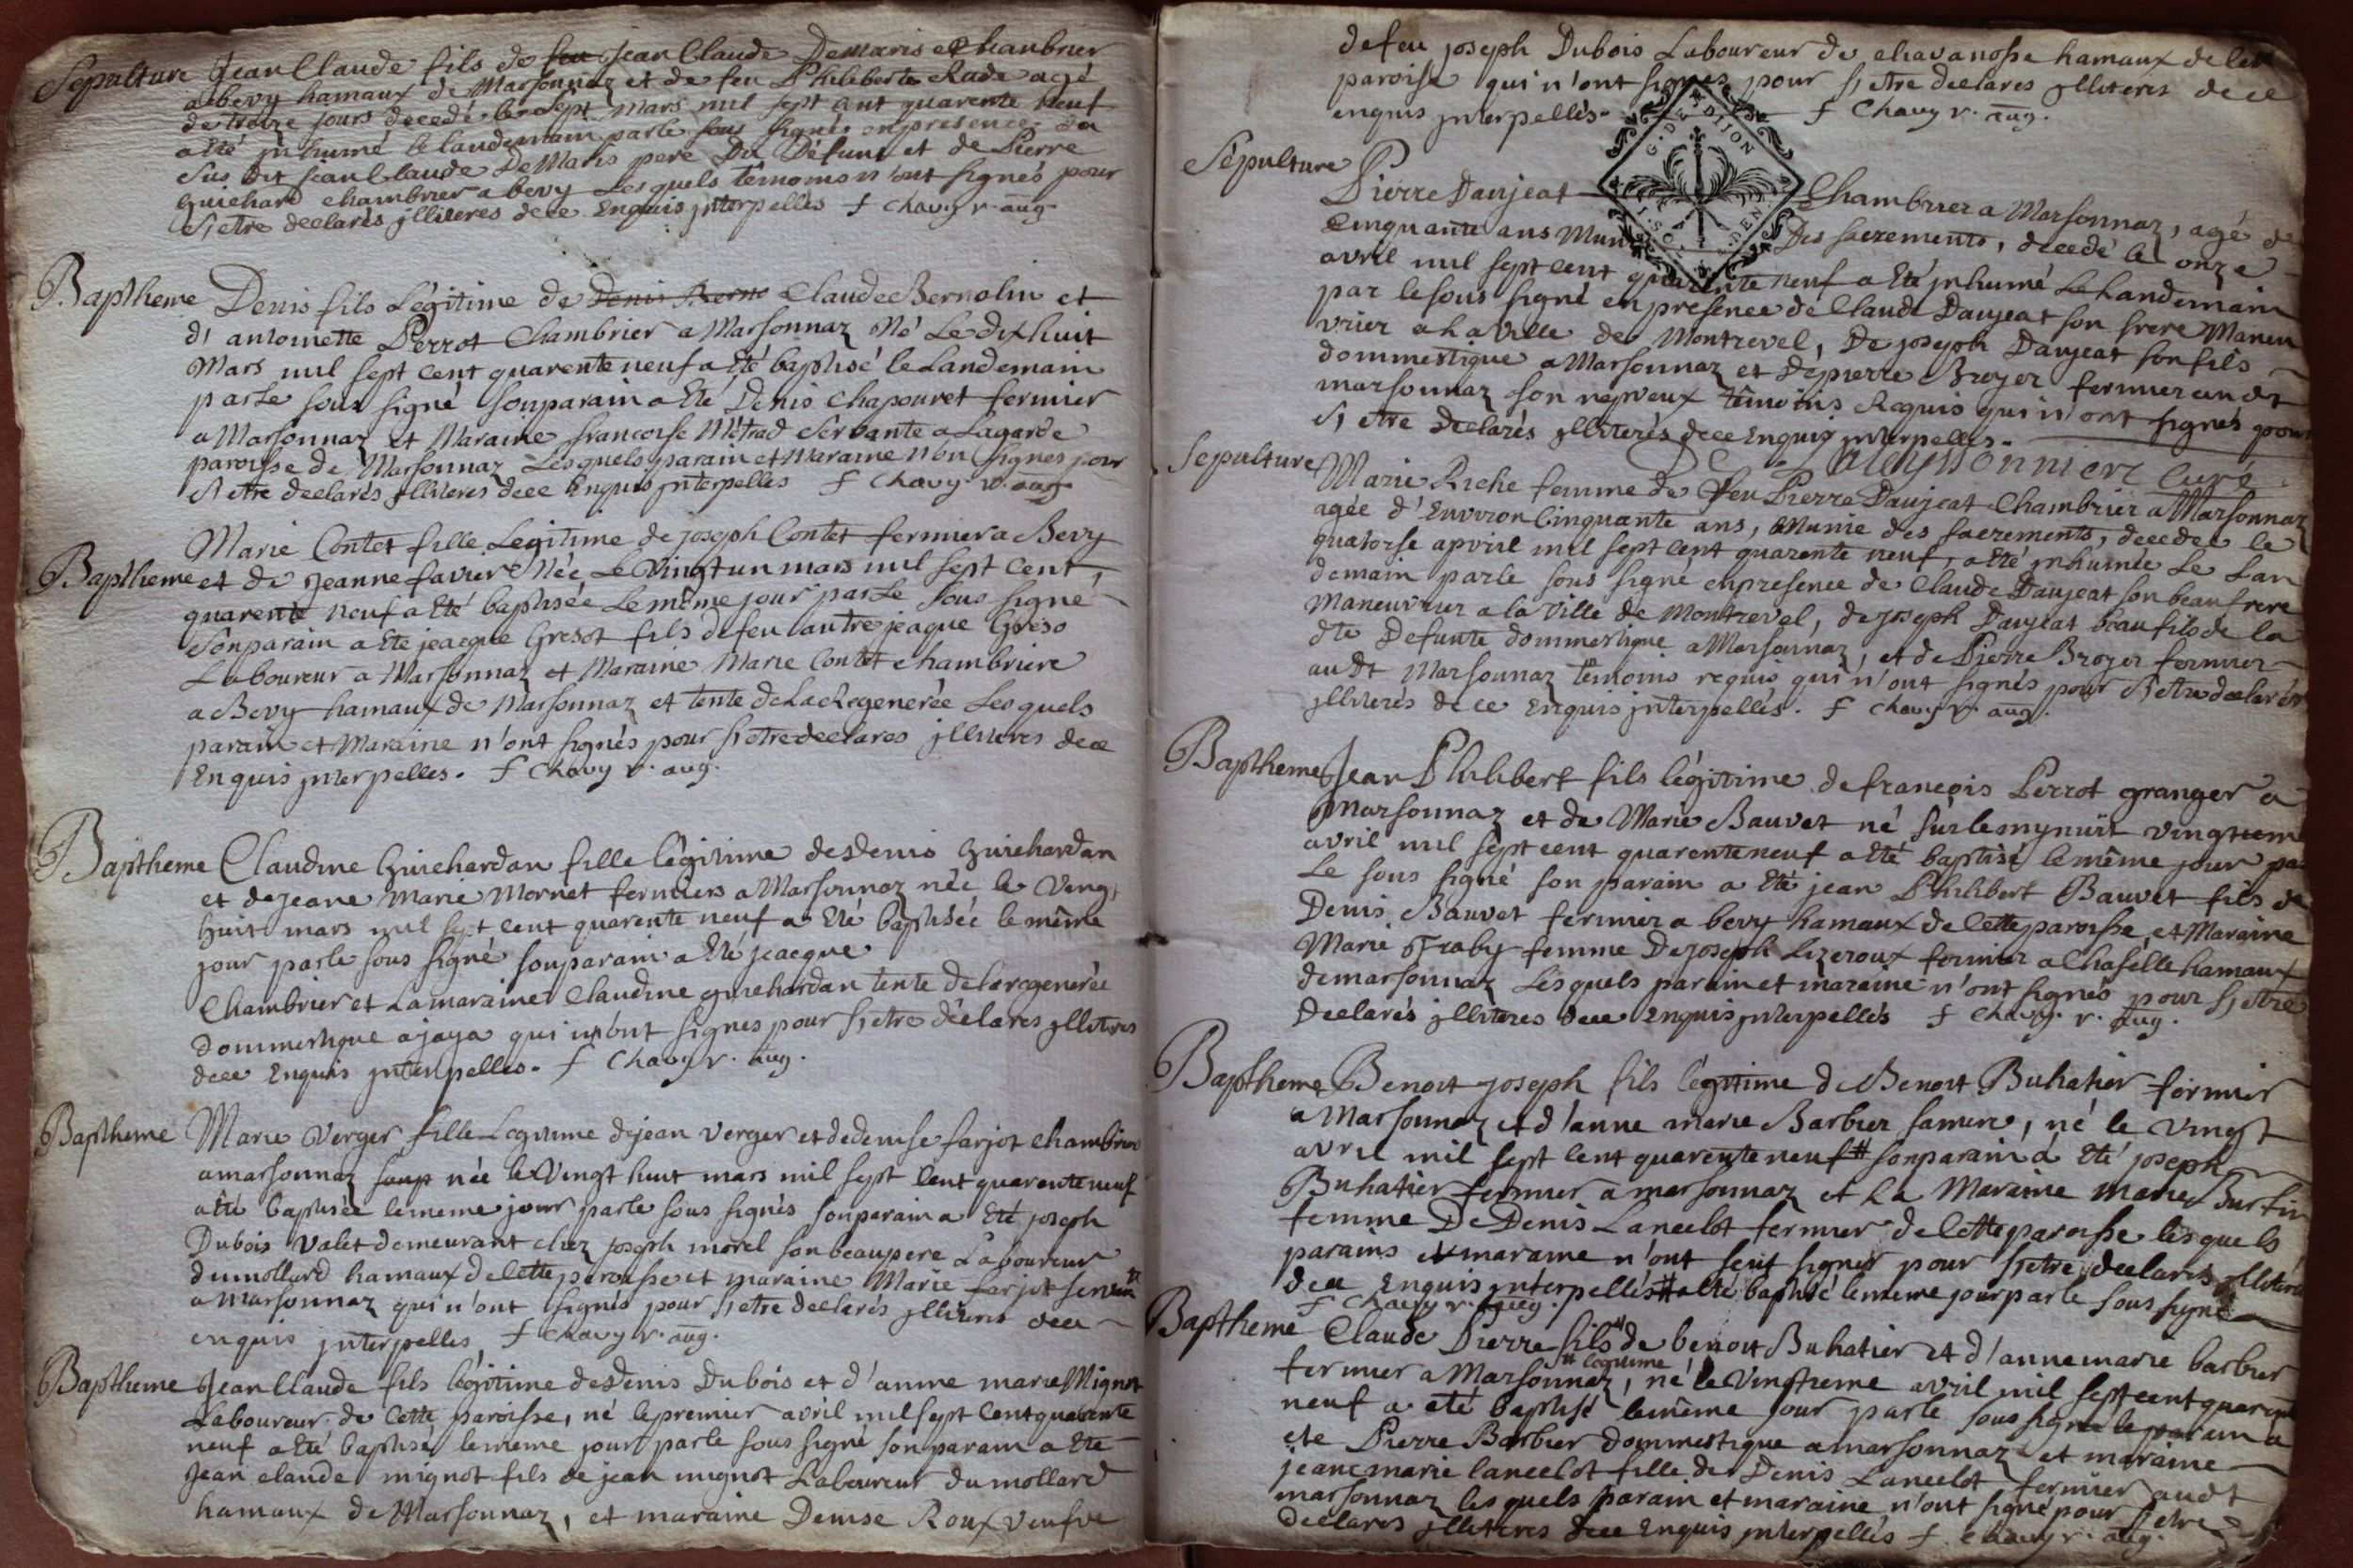 Sepulture Jean Claude fils de feu Jean Claude Demaris Chambrier
a bevy hamaux de Marsonnaz et de feu Philiberte Rude agé
de treize jours decedé le sept mars mil sept cent quarente neuf
a été jnhumé le landemain parle sous signé en presence du
sus dit jean Claude DeMaris pere Du Défunt et de Pierre
Guichard chambrier a bevy Lesquels témoins n'ont signés pour
s'j etre declarés jlliteres de ce Enquis jnterpellés f chavy v. aug.
Baptheme Denis fils Légitime de Denis Berno Claude Bernolin et
d'antoinette Perrot Chambrier a Marsonnaz Né Le dix huit
Mars mil sept cent quarente neuf a Eté baptisé le Landemain
parle sous signé son parain a Eté Denis Chapouret fermier
a Marsonnaz et Maraine francoise Métrad Servante a Lagarde
paroisse de Marsonnaz Lesquels parain et Maraine n'on signes pour
s'j etre declarés jlliteres de ce Enquis jnterpelles f Chavy v. aug
Marie Contet fille Legitime de joseph Contet fermier a Bevy
Baptheme et de jeanne favier Née Le Vingt un mars mil sept cent
quarente neuf a Eté baptisée Le même jour par Le sous signé
Son parain a Ete jeacque Gresot fils de feu autre jeaque Greso
Laboureur a Marsonnaz et Maraine Marie Contet chambriere
a Bevy hamaux de Marsonnaz et tente de La Regenerée Lesquels
parain et Maraine n'ont signés pour s'j etre declares jlliteres de ce
Enquis jnterpelles. f Chavy v. aug.
Baptheme Claudine Guichardan fille légitime de Denis Guichardan
et de jeane Marie Mornet fermiers a Marsonnaz née le Vingt
huit mars mil sept cent quarente neuf a Eté baptisée le même
jour parle sous signé son parain a Eté jeacque
Chambrier et La maraine Claudine guichardan tente de la regenerée
dommestique a jaya qui n'ont signes pour s'j etre déclares jlliteres
de ce Enquis jnterpelles. f Chavy v. aug.
Baptheme Marie Verger fille Legitime de jean Verger et de denise farjot chambrier
a marsonnaz née le Vingt huit mars mil sept Cent quarente neuf
a été baptisée le meme jour parle sous signés son parain a Eté joseph
Dubois valet demeurant chez joseph morel son beaupere Laboureur
du mollard hamaux de Cette paroisse et maraine Marie farjot servante
a Marsonnaz qui n'ont signés pour s'j etre declarés jlliteres de ce
enquis jnterpelles f chavy v. aug.
Baptheme Jean Claude fils légitime de Denis Dubois et d'anne marie Mignot
Laboureur de Cette paroisse, né le premier avril mil sept Cent quarente
neuf a Eté baptisé le meme jour parle sous signé son parain a Ete
Jean claude mignot fils de jean mignot Laboureur du mollard
hamaux de Marsonnaz, et maraine Denise Roux veufve
de feu joseph Dubois Laboureur de chavanosse hamaux de Cette
paroise qui n'ont signés pour s'j etre declares jlliteres de ce
enquis jnterpellés. f Chavy v. aug.
G. DE DIJON
Sépulture Pierre Daujeat Chambrier a Marsonnaz, agé de
Cinquante ans Muni Des sacrements, decedé le onze
avril mil sept cent quarente neuf a Eté jnhumé Le Landemain
par le sous signé en presence de Claude Daujeat son frere Maneu
vrier a La Ville de Montrevel, De joseph Daujeat son fils
dommestique a Marsonnaz et de pierre Broyer fermier au dt
marsonnaz son nepveux témoins Requis qui n'ont signés pour
s'j etre declarés jlliterés de ce Enquis jnterpellés.
aleyssonniere Curé
Sepulture Marie Riche femme de feu Pierre Daujeat Chambrier a Marsonnaz
agée d'Environ Cinquante ans, Munie des sacrements, decedée le
quatorse apvril mil sept cent quarente neuf, a Eté jnhumée Le Lan
demain parle sous signé en presence de Claude Daujeat son beau frere
Maneuvrier a la Ville de Montrevel, de joseph Daujeat beau fils de la
dte Defunte dommestique a Marsonnaz, et de Pierre Broyer fermier
au dt Marsonnaz témoins requis qui n'ont signés pour s'j etre declarés
jlliterés de ce Enquis jnterpellés. f chavy v. aug.
Baptheme Jean Philibert fils légitime de francois Perrot granger a
Marsonnaz et de Marie Bauvet né sur le mynuit vingtieme
avril mil sept cent quarente neuf a Eté baptisé le même jour par
Le sous signé son parain a Eté jean Philibert Bauvet fils de
Denis Bauvet fermier a bevy hamaux de Cette paroisse et Maraine
Marie Traby femme De joseph Lizeroux fermier a Chaselle hamaux
de marsonnaz Lesquels parain et maraine n'ont signés pour s'j etre
declarés jlliteres de ce Enquis jnterpellés f chavy. v. aug.
Baptheme Benoit joseph fils légitime de Benoit Buhatier fermier
a Marsonnaz et d'anne marie Barbier, né le vingt
avril mil sept cent quarente neuf # son parain a Eté joseph
Buhatier fermier a marsonnaz et La Maraine marie Burtin
femme De Denis Lancelot fermier de Cette paroisse lesquels
parains et maraine n'ont seut signer pour s'j etre declarés jlliteres
de ce Enquis jnterpellés # a Eté baptisé le meme jour parle sous signé
f chavy v. aug.
Baptheme Claude Pierre fils # de benoit Buhatier et d'anne marie barbier
# legitime
fermier a Marsonnaz, né le Vingtieme avril mil sept cent quarente
neuf a eté baptisé le même jour parle sous signé le parain a
ete Pierre Barbier dommestique a marsonnaz et maraine
jeane marie lancelot fille de Denis Lancelot fermier audt
marsonnaz lesquels parain et maraine n'ont signé pour s'j etre
declares jlliteres de ce Enquis jnterpellés f. chavy v. aug.